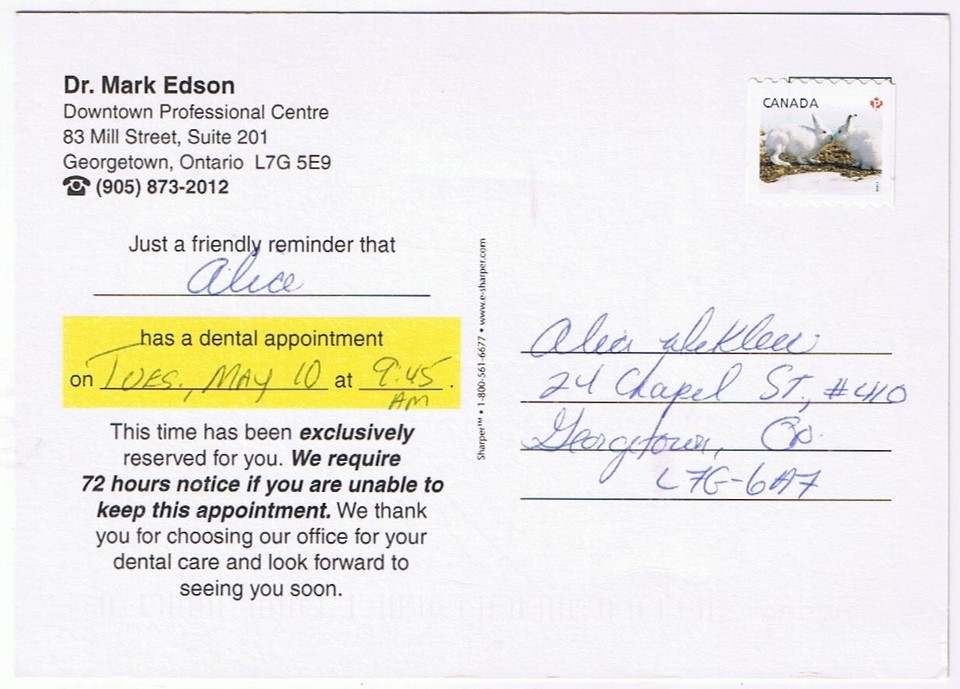 Dr. Mark Edson
Downtown Professional Centre
83 Mill Street, Suite 201
Georgetown, Ontario L7G 5E9
(905) 873-2012
CANADA
P
Just a friendly reminder that
Alice
has a dental appointment
on TUES, MAY 10 at 9:45 .
AM
This time has been exclusively
reserved for you. We require
72 hours notice if you are unable to
keep this appointment. We thank
you for choosing our office for your
dental care and look forward to
seeing you soon.
Sharper™ • 1-800-561-6677 • www.e-sharper.com
Alice
24 Chapel St., #410
Georgetown, On.
L7G-6A7